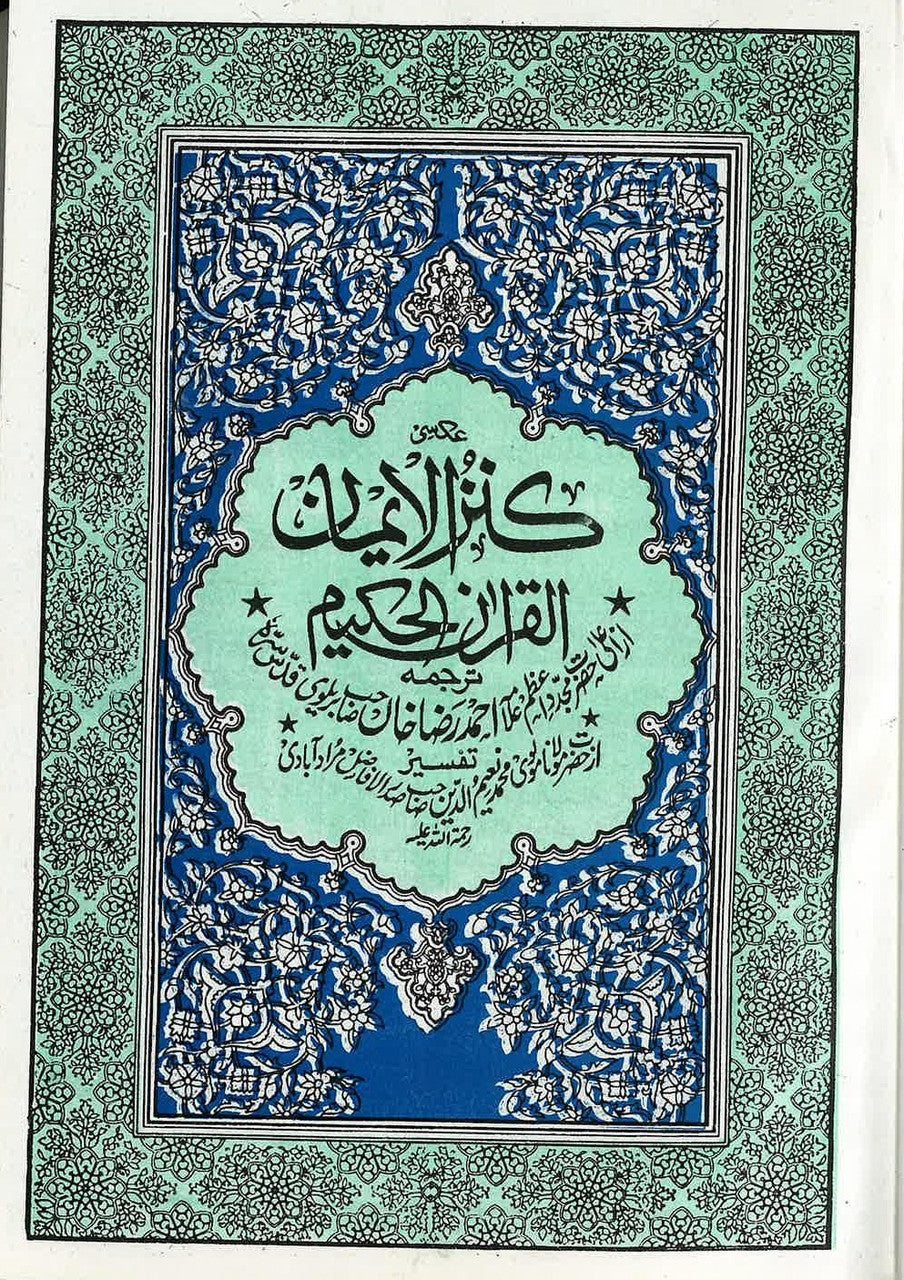 عکسی
كنز الايمان
القرآن الحكيم
ترجمہ
از اعلیٰ حضرت مجدد اعظم علامہ احمد رضا خاں صاحب بریلوی قدس سرہ
تفسیر
از حضرت مولانا مولوی محمد نعیم الدین صاحب صدر الافاضل مراد آبادی
رحمۃ اللہ علیہ